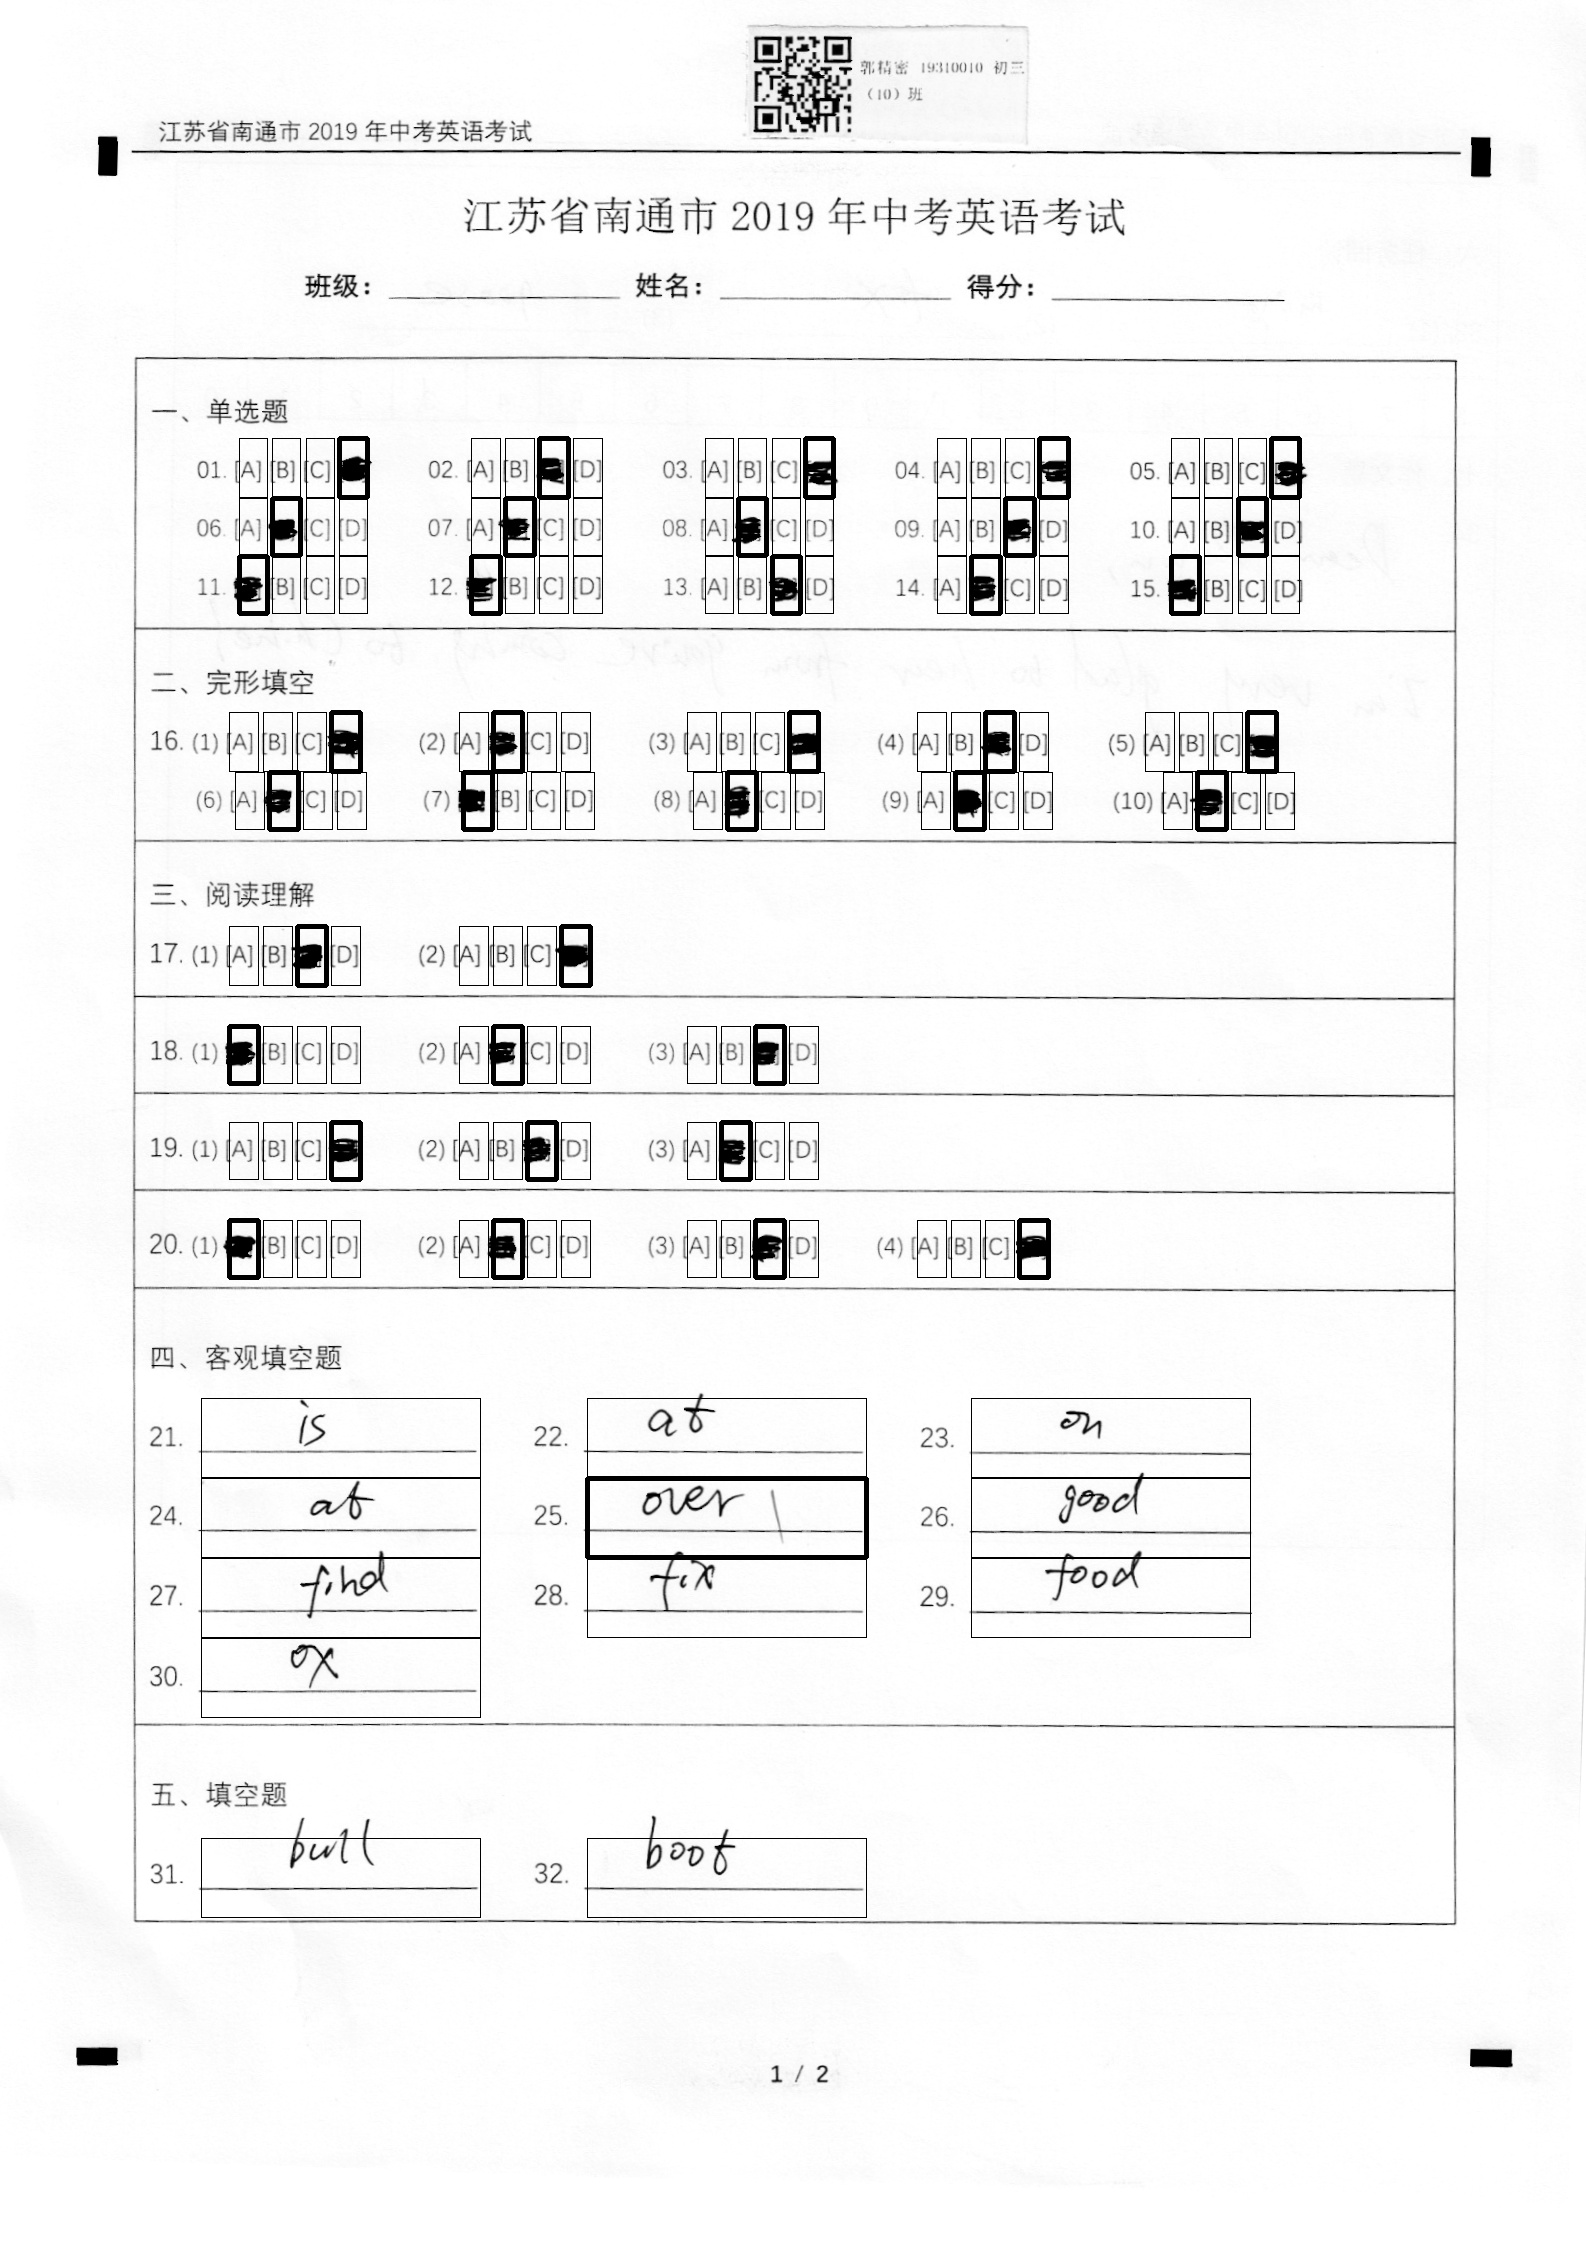 郭精密 19310010 初三
（10）班
江苏省南通市 2019 年中考英语考试
江苏省南通市 2019 年中考英语考试
班级： 姓名： 得分：
一、单选题
01. [A] [B] [C] 02. [A] [B] [D] 03. [A] [B] [C] 04. [A] [B] [C] 05. [A] [B] [C]
06. [A] [C] [D] 07. [A] [C] [D] 08. [A] [C] [D] 09. [A] [B] [D] 10. [A] [B] [D]
11. [B] [C] [D] 12. [B] [C] [D] 13. [A] [B] [D] 14. [A] [C] [D] 15. [B] [C] [D]
二、完形填空
16. (1) [A] [B] [C] (2) [A] [C] [D] (3) [A] [B] [C] (4) [A] [B] [D] (5) [A] [B] [C]
(6) [A] [C] [D] (7) [B] [C] [D] (8) [A] [C] [D] (9) [A] [C] [D] (10) [A] [C] [D]
三、阅读理解
17. (1) [A] [B] [D] (2) [A] [B] [C]
18. (1) [B] [C] [D] (2) [A] [C] [D] (3) [A] [B] [D]
19. (1) [A] [B] [C] (2) [A] [B] [D] (3) [A] [C] [D]
20. (1) [B] [C] [D] (2) [A] [C] [D] (3) [A] [B] [D] (4) [A] [B] [C]
四、客观填空题
21. is 22. at 23. on
24. at 25. over 26. good
27. find 28. fix 29. food
30. ox
五、填空题
31. bull 32. boot
1 / 2